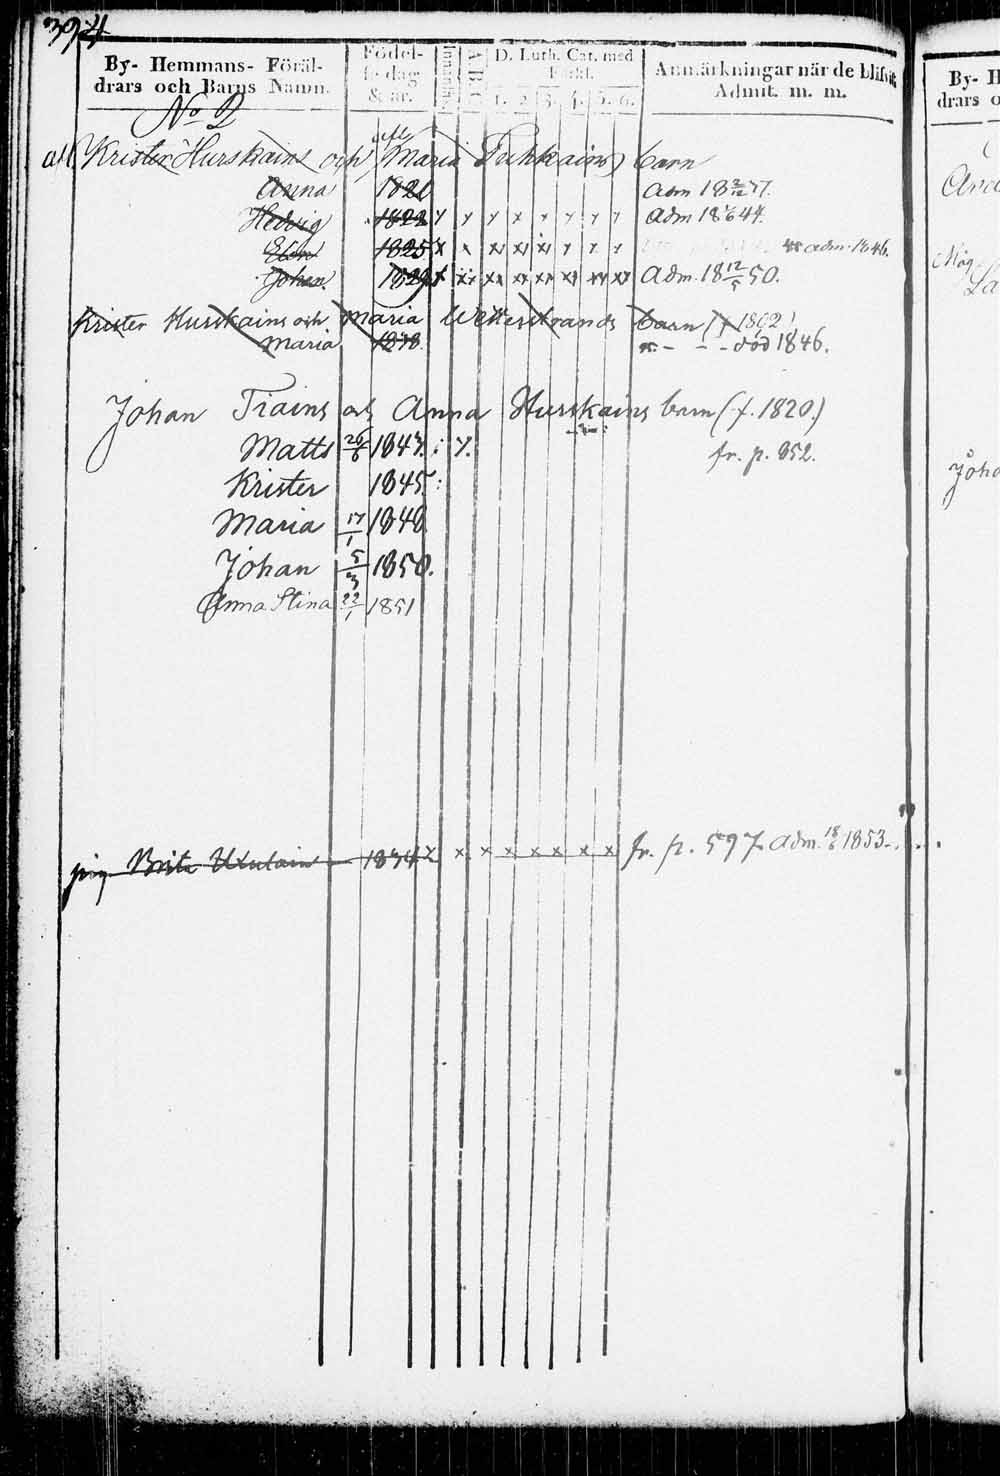 394
By- Hemmans- Föräl- drars och Barns Namn.
Födel- sedag & år.
A B C
D. Luth. Cat. med Förkl.
1. 2. 3. 4. 5. 6.
Anmärkningar när de blifvit Admit. m. m.
No 2
afl. Krister Hurskains och afl Maria Puhkains barn
Anna 1820 adm 18 2/12 37.
Hedvig 1822 x x x x x x x x adm 18 1/6 44.
Elin 1825 x x x x x x x x adm. 1846.
Johan 1829 x x x x x x x x Adm. 18 12/5 50.
Krister Hurskains och Maria Wetterstrands barn (f 1802)
Maria 1848. död 1846.
Johan Tiains och Anna Hurskains barn (f. 1820.)
Matts 26/6 1843. fr. p. 352.
Krister 1845
Maria 17/1 1848
Johan 5/3 1850.
Anna Stina 22/1 1851
pig. Brita 1834 x x x x x x x x fr. p. 597 adm. 18/6 1853.
By- H
drars o
Joha